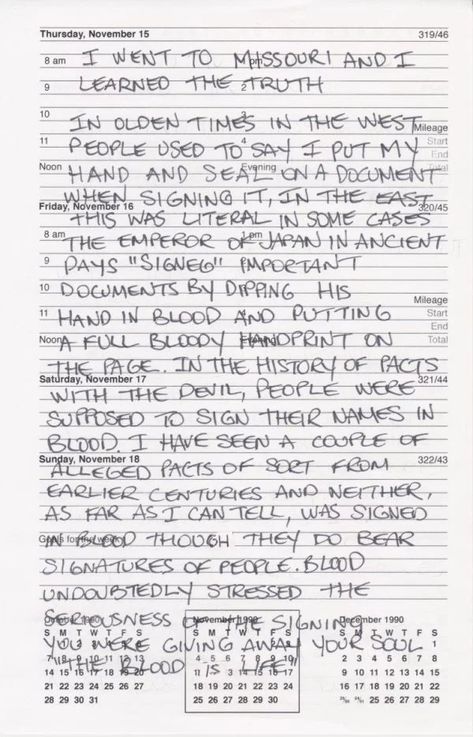 Thursday, November 15 319/46
8 am I WENT TO MISSOURI AND I
9 LEARNED THE TRUTH
10 IN OLDEN TIMES IN THE WEST Mileage
11 PEOPLE USED TO SAY I PUT MY Start
End
Noon HAND AND SEAL ON A DOCUMENT Total
Evening
WHEN SIGNING IT, IN THE EAST
Friday, November 16 320/45
THIS WAS LITERAL IN SOME CASES
8 am THE EMPEROR OF JAPAN IN ANCIENT
9 DAYS "SIGNEG" IMPORTANT
10 DOCUMENTS BY DIPPING HIS
Mileage
11 HAND IN BLOOD AND PUTTING Start
End
Noon A FULL BLOODY HANDPRINT ON Total
THE PAGE. IN THE HISTORY OF PACTS
Saturday, November 17 321/44
WITH THE DEVIL, PEOPLE WERE
SUPPOSED TO SIGN THEIR NAMES IN
BLOOD. I HAVE SEEN A COUPLE OF
Sunday, November 18 322/43
ALLEGED PACTS OF SORT FROM
EARLIER CENTURIES AND NEITHER,
AS FAR AS I CAN TELL, WAS SIGNED
Goals for the week
IN BLOOD THOUGH THEY DO BEAR
SIGNATURES OF PEOPLE. BLOOD
UNDOUBTEDLY STRESSED THE
SERIOUSNESS OF THE SIGNING
October 1990 November 1990 December 1990
S M T W T F S S M T W T F S S M T W T F S
YOU WERE GIVING AWAY YOUR SOUL 1
"THE BLOOD IS LIFE" 2 3 4 5 6 7 8
14 15 16 17 18 19 20 11 12 13 14 15 16 17 9 10 11 12 13 14 15
21 22 23 24 25 26 27 18 19 20 21 22 23 24 16 17 18 19 20 21 22
28 29 30 31 25 26 27 28 29 30 23/30 24/31 25 26 27 28 29